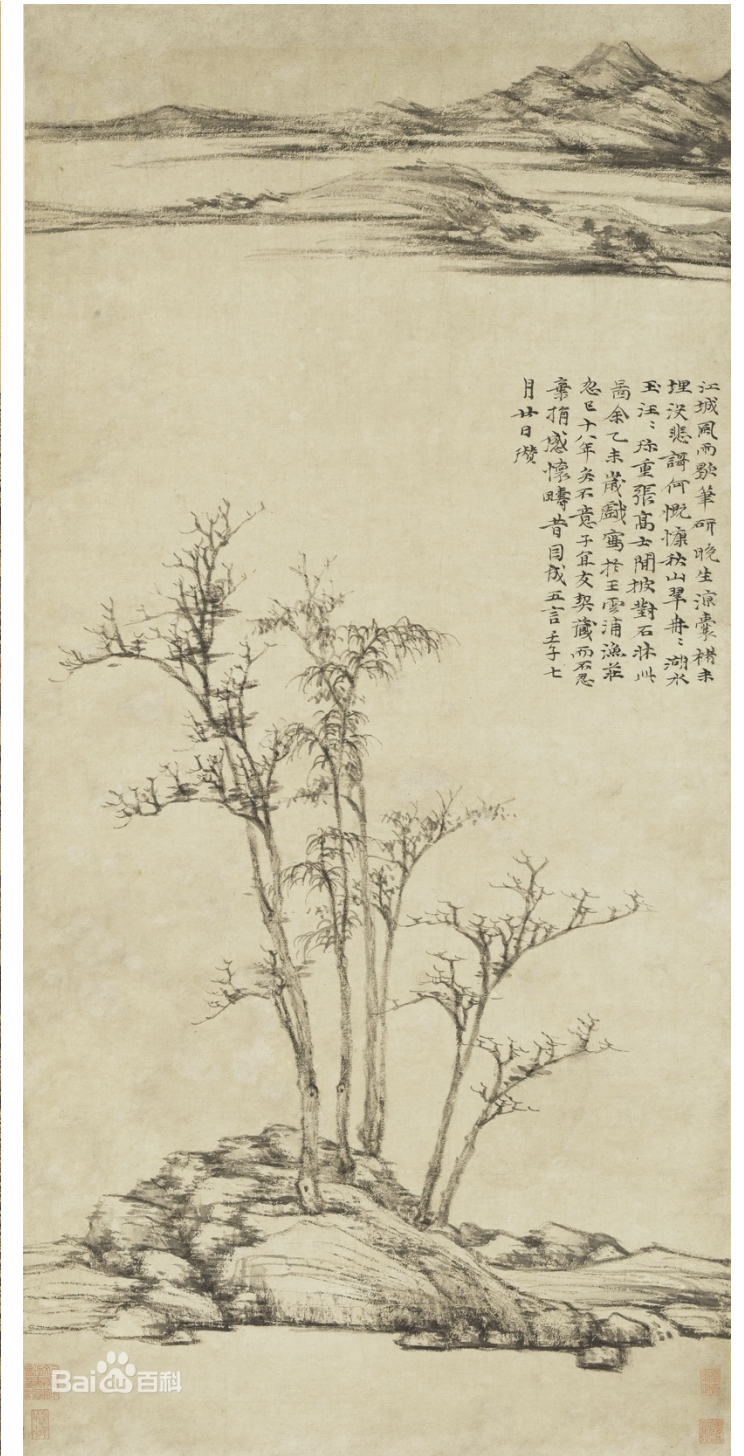 江城風雨歇筆研晚生涼囊楮未
埋没悲謌何慨慷秋山翠冉〻湖水
玉汪〻珎重張高士閒披對石牀此
啚余乙未歲戲寫於王雲浦漁莊
忽已十八年矣不意子宜友契藏而不忍
棄捐感懷疇昔因成五言壬子七
月廿日瓚
Baidu百科